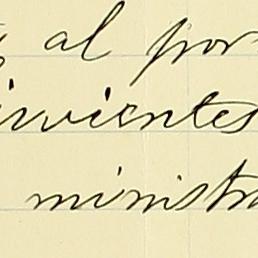 al por
irvientes
ministra